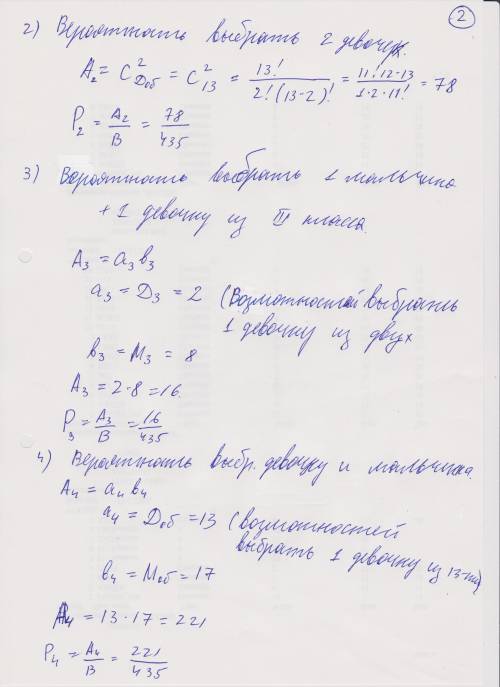 2
2) Вероятность выбрать 2 девочек.
A₂ = C²Доб = C²₁₃ = 13! / 2!(13-2)! = 11!·12·13 / 1·2·11! = 78
P₂ = A₂/B = 78/435
3) Вероятность выбрать 1 мальчика
+ 1 девочку из III класса.
A₃ = a₃ b₃
a₃ = D₃ = 2 (Возможностей выбрать
1 девочку из двух
b₃ = M₃ = 8
A₃ = 2·8 = 16.
P₃ = A₃/B = 16/435
4) Вероятность выбр. девочку и мальчика.
A₄ = a₄ b₄
a₄ = Доб = 13 (возможностей
выбрать 1 девочку из 13-ти)
b₄ = Mоб = 17
A₄ = 13·17 = 221
P₄ = A₄/B = 221/435